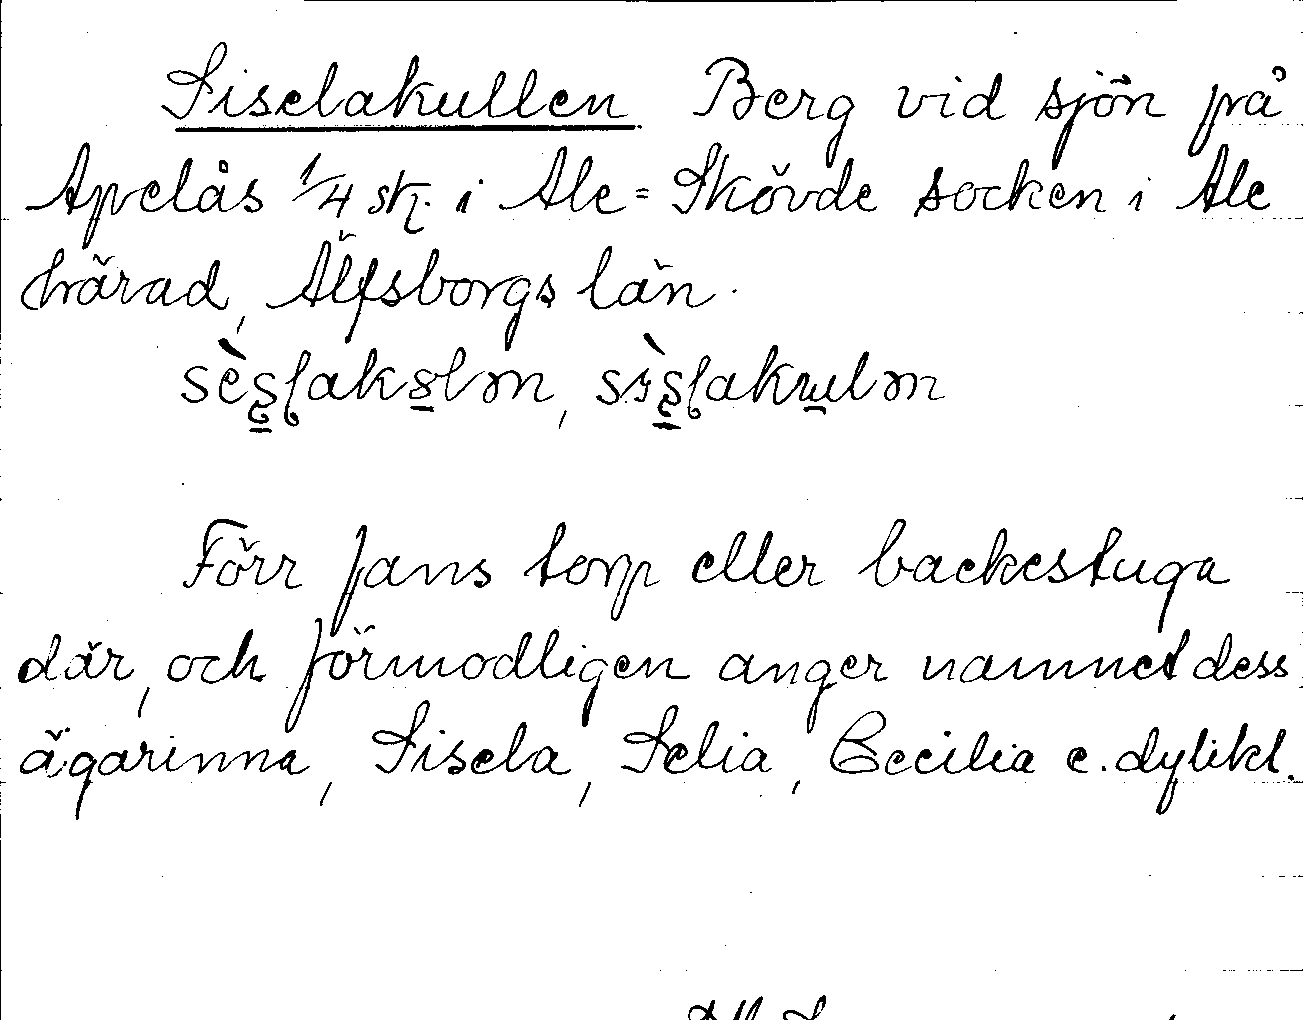 Siselakullen Berg vid sjön på
Apelås 1/4 sk. i Ale-Skövde socken i Ale
härad, Älfsborgs län.
Förr fans torp eller backestuga
där, och förmodligen anger namnet dess
ägarinna, Sisela, Selia, Cecilia e. dylikt.